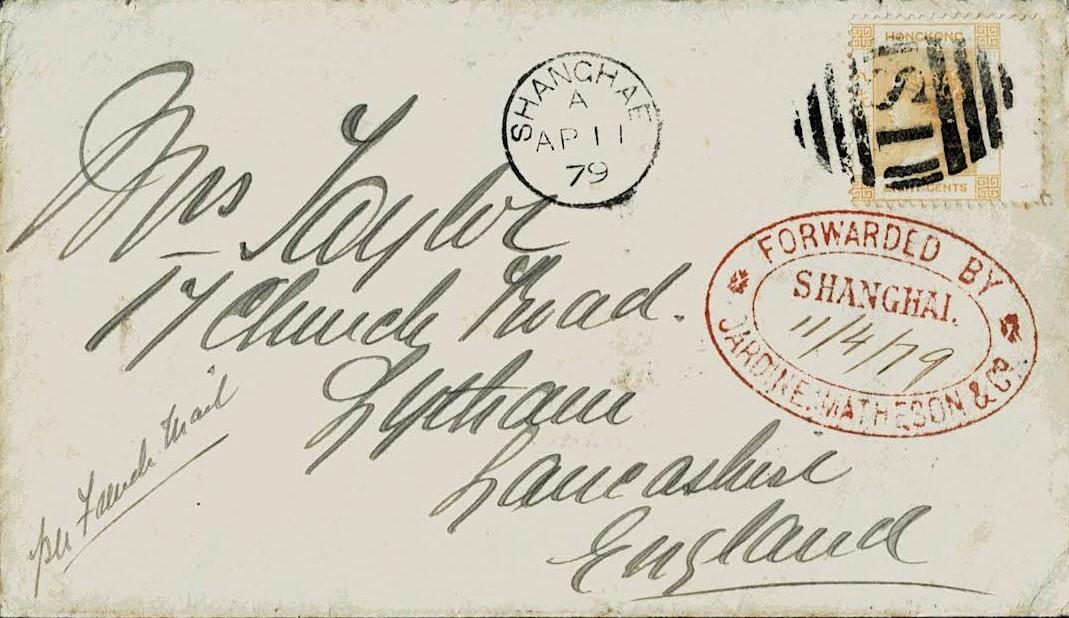 HONGKONG
S1
EIGHT CENTS
SHANGHAE
A
AP 11
79
FORWARDED BY
SHANGHAI.
11/4/79
JARDINE, MATHESON & Co.
Mrs Taylor
17 Church Road.
Lytham
Lancashire
England
per French Mail